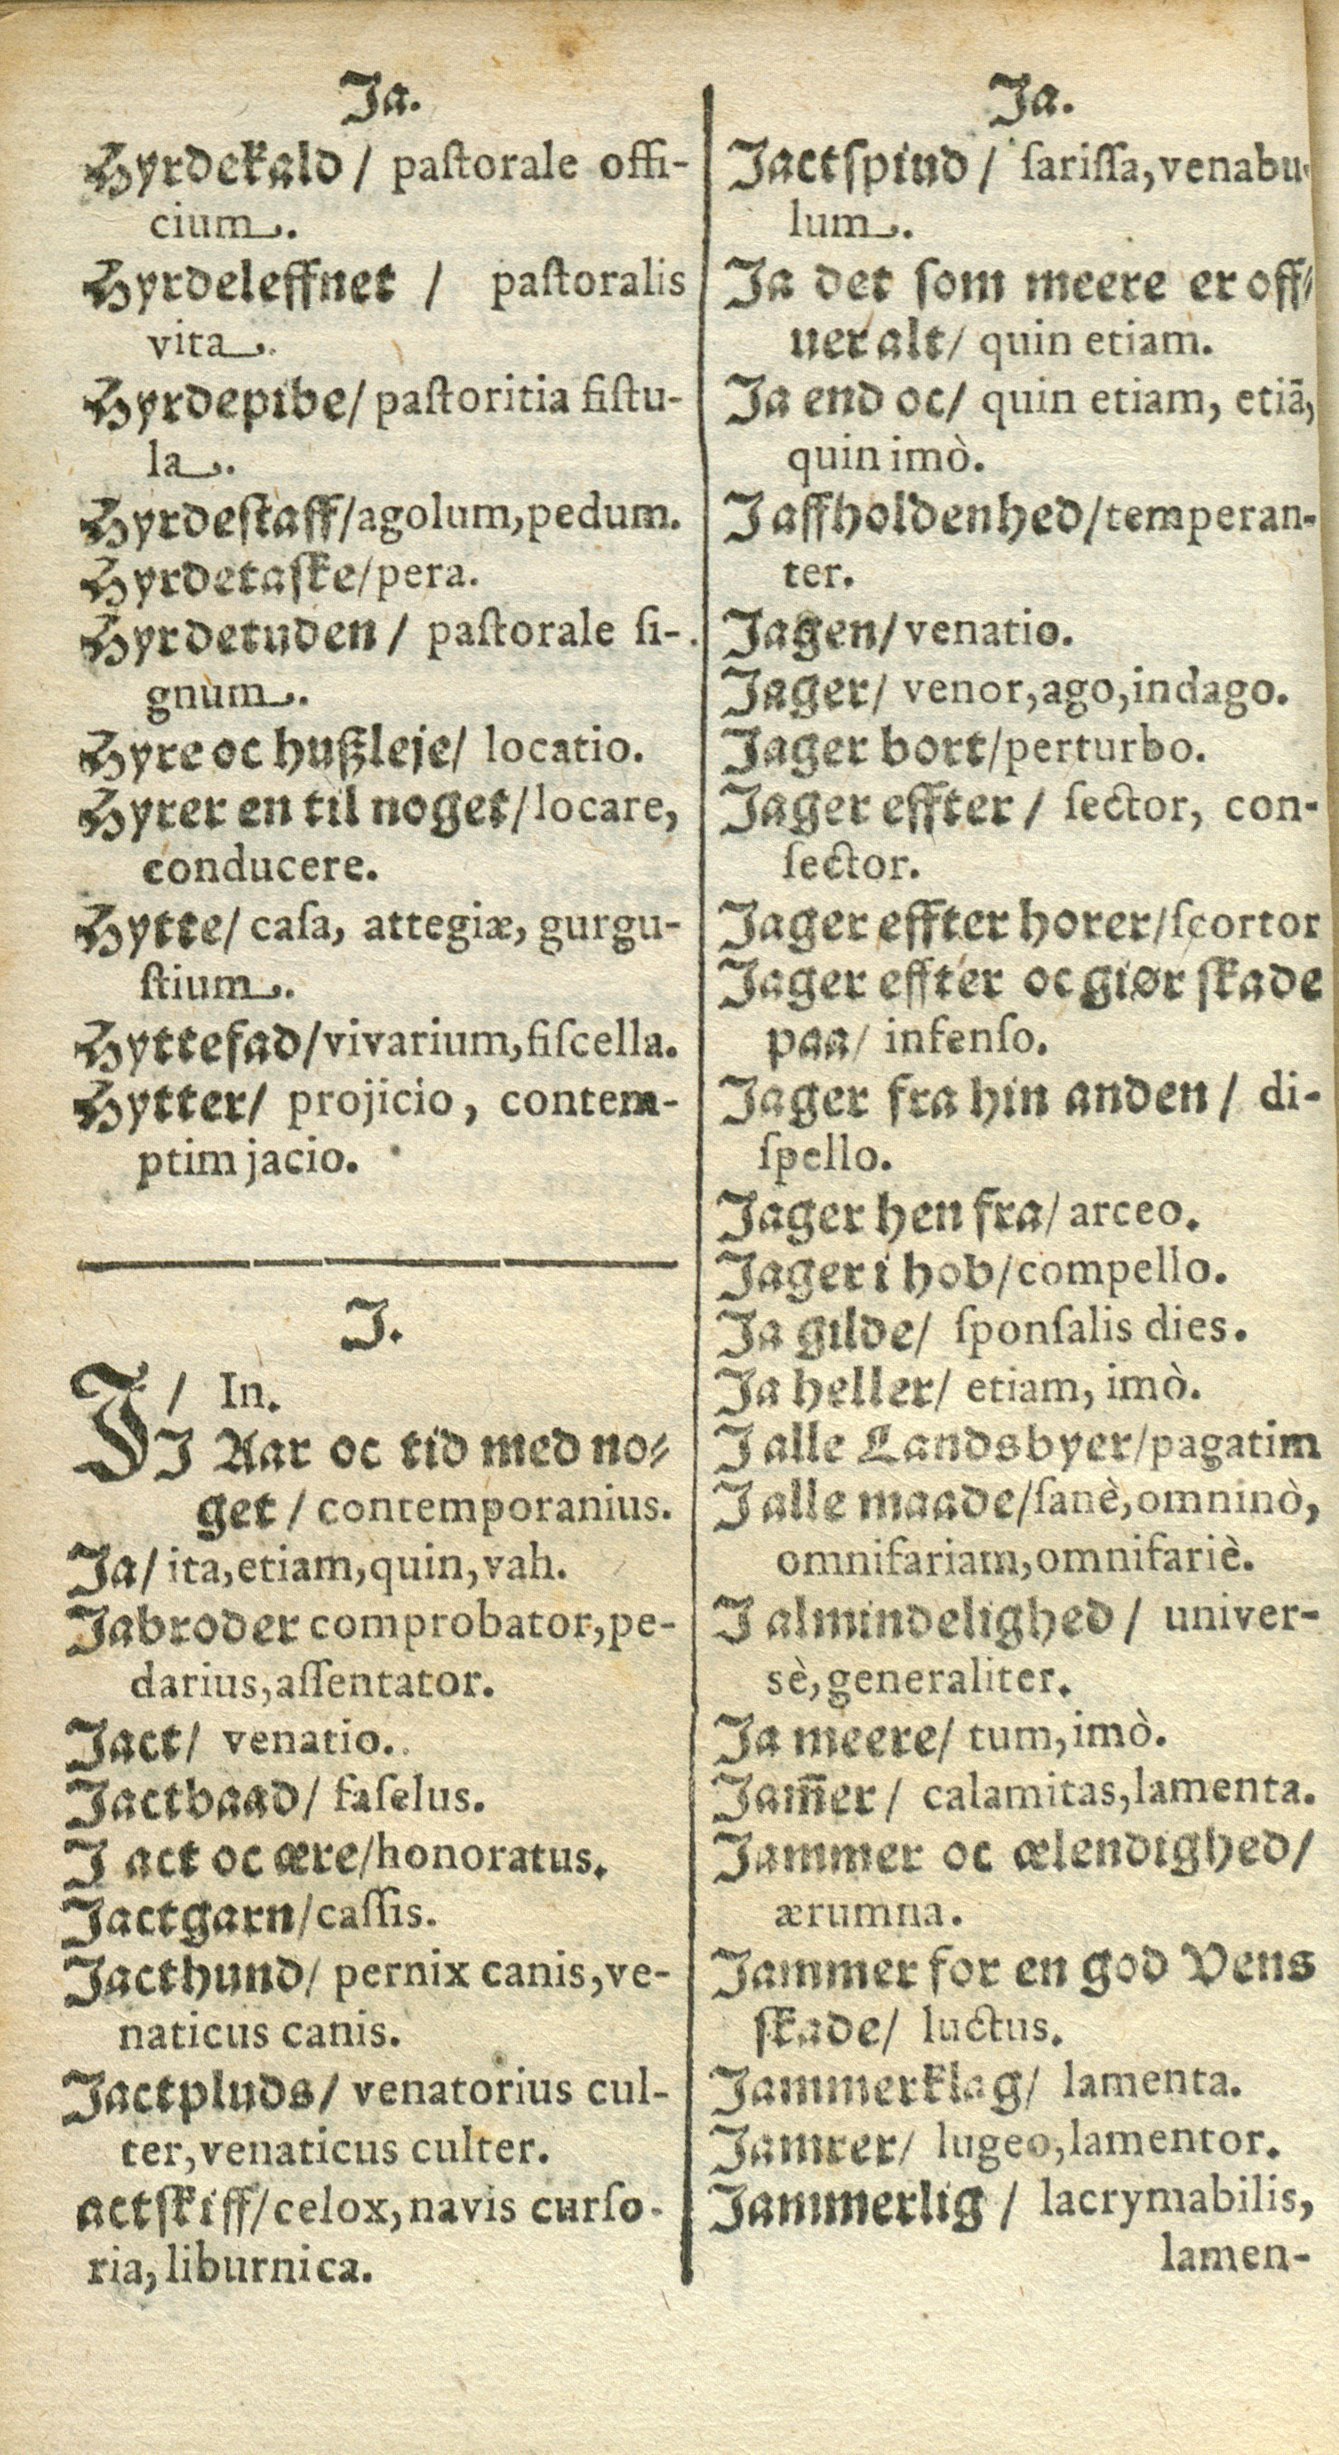 Ja.
Hyrdekald / paſtorale offi-
cium.
Hyrdeleffnet / paſtoralis
vita.
Hyrdepibe/ paſtoritia fiſtu-
la.
Hyrdeſtaff/agolum,pedum.
Hyrdetaſke/pera.
Hyrdetuden / paſtorale ſi-
gnum.
Hyre oc hußleje/ locatio.
Hyrer en til noget/locare,
conducere.
Hytte/ caſa, attegiæ, gurgu-
ſtium.
Hyttefad/vivarium,fiſcella.
Hytter/ projicio, contem-
ptim jacio.
J.
J/ In.
J Aar oc tid med no-
get / contemporanius.
Ja/ ita,etiam,quin,vah.
Jabroder comprobator,pe-
darius,aſſentator.
Jact/ venatio.
Jactbaad/ faſelus.
J act oc ære/honoratus.
Jactgarn/caſſis.
Jacthund/ pernix canis,ve-
naticus canis.
Jactpluds/ venatorius cul-
ter,venaticus culter.
actſkiff/celox,navis curſo-
ria,liburnica.
Ja.
Jactſpiud / ſariſſa,venabu-
lum.
Ja det ſom meere er off-
uer alt/ quin etiam.
Ja end oc/ quin etiam, etiā,
quin imò.
J affholdenhed/temperan-
ter.
Jagen/venatio.
Jager/ venor,ago,indago.
Jager bort/perturbo.
Jager effter / ſector, con-
ſector.
Jager effter horer/ſcortor
Jager effter oc giør ſkade
paa/ infenſo.
Jager fra hin anden / di-
ſpello.
Jager hen fra/ arceo.
Jager i hob/compello.
Ja gilde/ ſponſalis dies.
Ja heller/ etiam, imò.
J alle Landsbyer/pagatim
J alle maade/ſanè,omninò,
omnifariam,omnifariè.
J almindelighed / univer-
sè,generaliter.
Ja meere/ tum,imò.
Jam̄er / calamitas,lamenta.
Jammer oc ælendighed/
ærumna.
Jammer for en god Vens
ſkade/ luctus.
Jammerklag/ lamenta.
Jamrer/ lugeo,lamentor.
Jammerlig / lacrymabilis,
lamen-